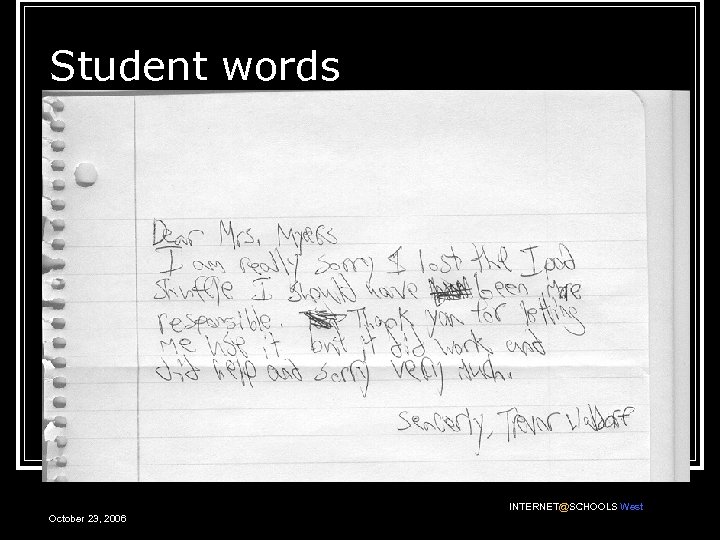 Student words
Dear Mrs. Myers
I am really sorry I lost the Ipod
shuffle I should have been more
responsible. Thank you for letting
me use it but it did work and
did help and sorry very much.
Sencerly, Trevor
October 23, 2006
INTERNET@SCHOOLS West